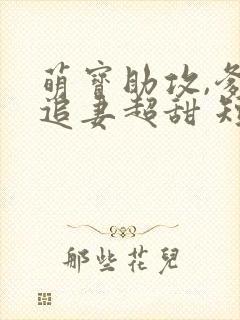 萌寶助攻,爹
追妻超甜 短
那些花兒